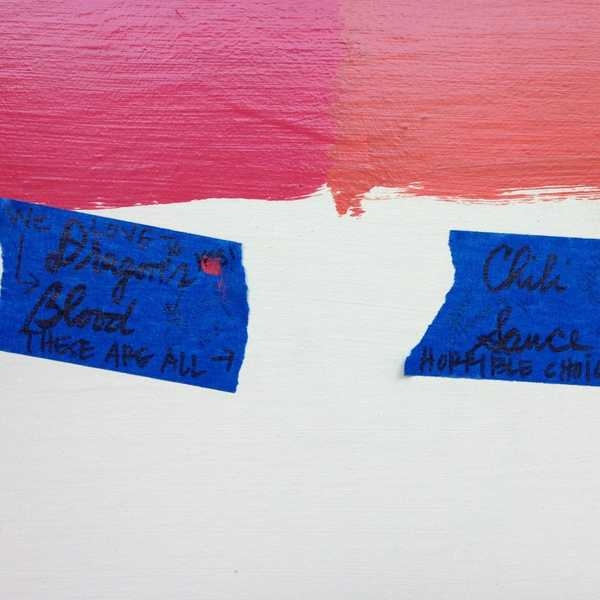 WE LOVE
Dragon's
Blood
THESE ARE ALL →
Chili
Sauce
HORRIBLE CHOIC